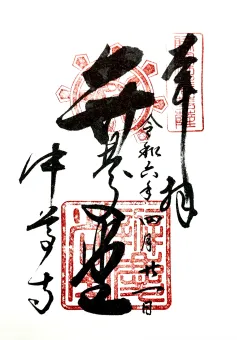 奉拝
令和六年四月廿一日
弁慶堂
中尊寺